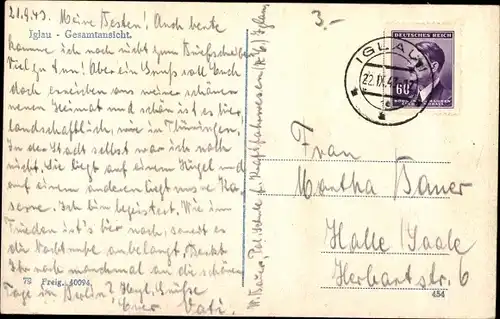 21.9.43. Meine Besten! Auch heute
komme ich noch nicht zum Briefschreiben
Iglau - Gesamtansicht.
Viel zu tun! Aber ein Gruß soll Euch
doch erreichen aus meiner neuen
Heimat und schön ist es hier,
landschaftlich, wie in Thüringen.
In der Stadt selbst war ich noch
nicht. Sie liegt auf einem Hügel und
auf einem anderen liegt unsere Ka-
serne. Ich bin begeistert. Wie im
Frieden ist's hier noch, soweit es
die Nachtruhe anbelangt. Denkt
Ihr noch manchmal an die schönen
Tage in Berlin? Herzl. Grüße
Euer Vati.
7B Freig. 40094
3.-
DEUTSCHES REICH
60
BÖHMEN UND MÄHREN
IGLAU
22.IX.43
Frau
Martha Bauer
Halle/Saale
Herbartstr. 6
454